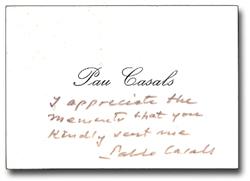 Pau Casals
I appreciate the
memento that you
kindly sent me
Pablo Casals